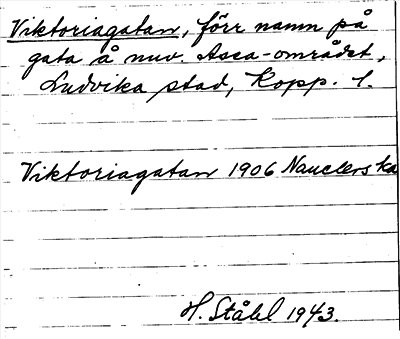 Viktoriagatan, förr namn på
gata å nuv. Asea-området,
Ludvika stad, Kopp. l.
Viktoriagatan 1906 Nauclers ka
H. Ståhl 1943.